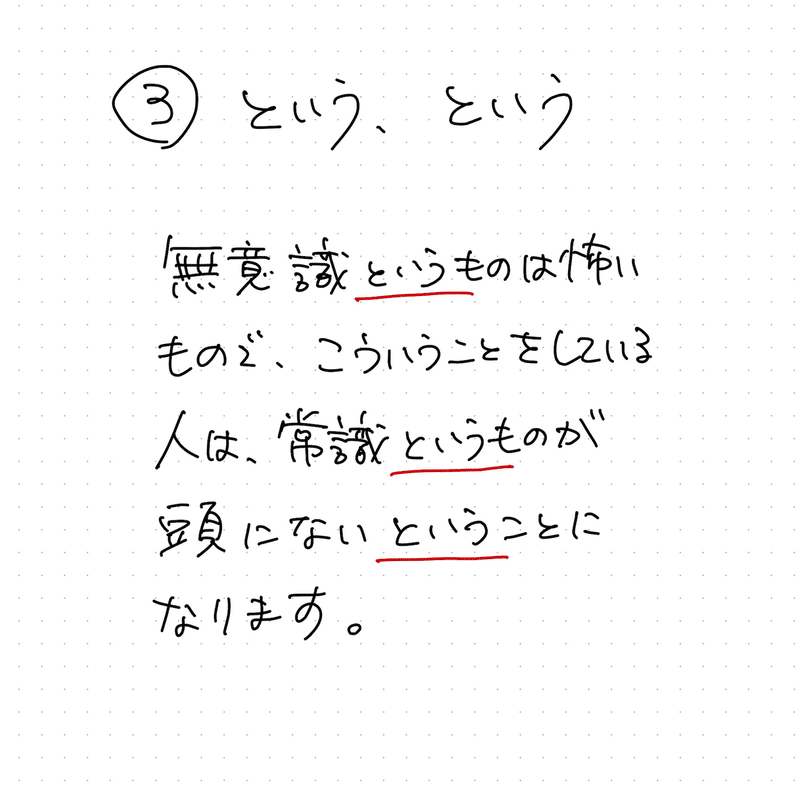 ③ という、という
無意識というものは怖い
もので、こういうことをしている
人は、常識というものが
頭にないということに
なります。